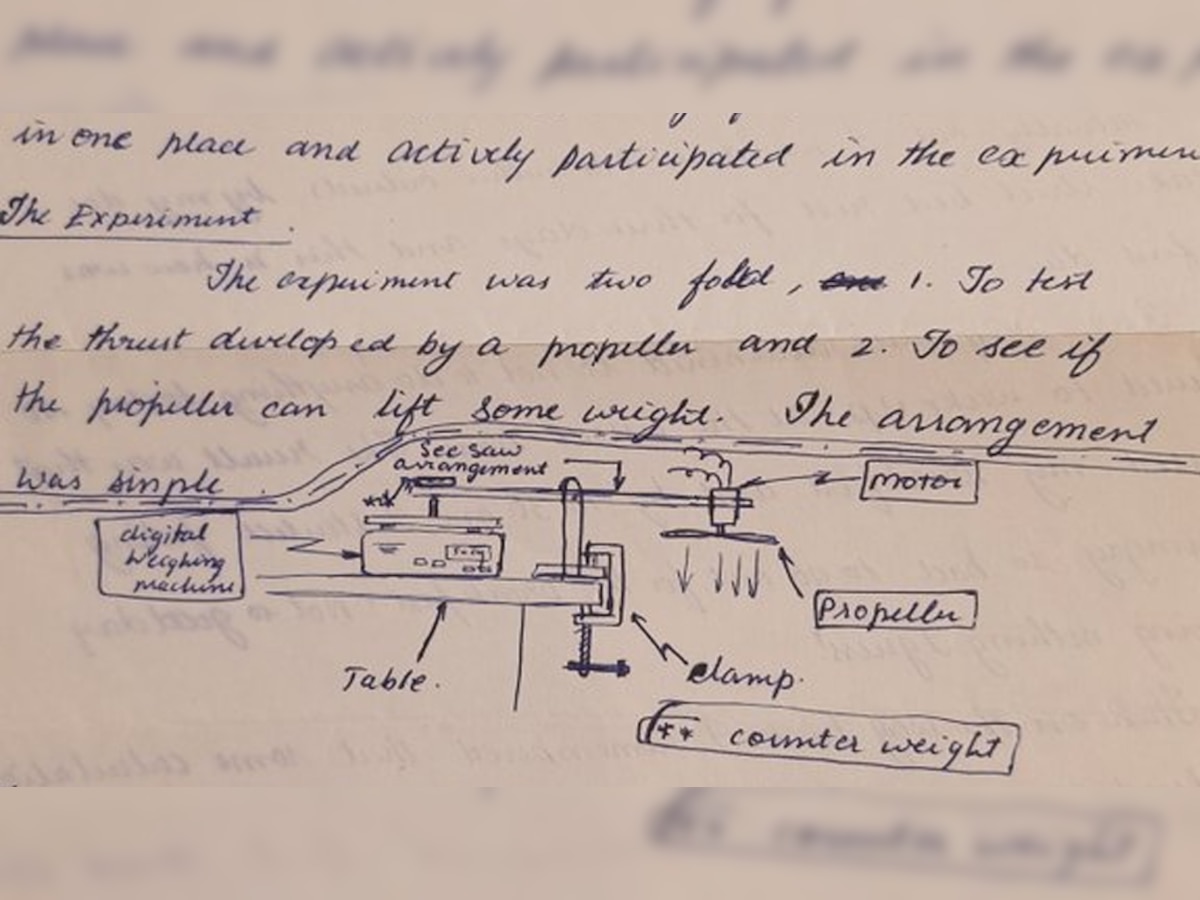 in one place and actively participated in the
The Experiment.
The experiment was two fold, 1. To test
the thrust developed by a propeller and 2. To see if
the propeller can lift some weight. The arrangement
was simple
See saw
arrangement
**
MOTOR
digital
Weighing
machine
Propeller
Table.
clamp.
** counter weight